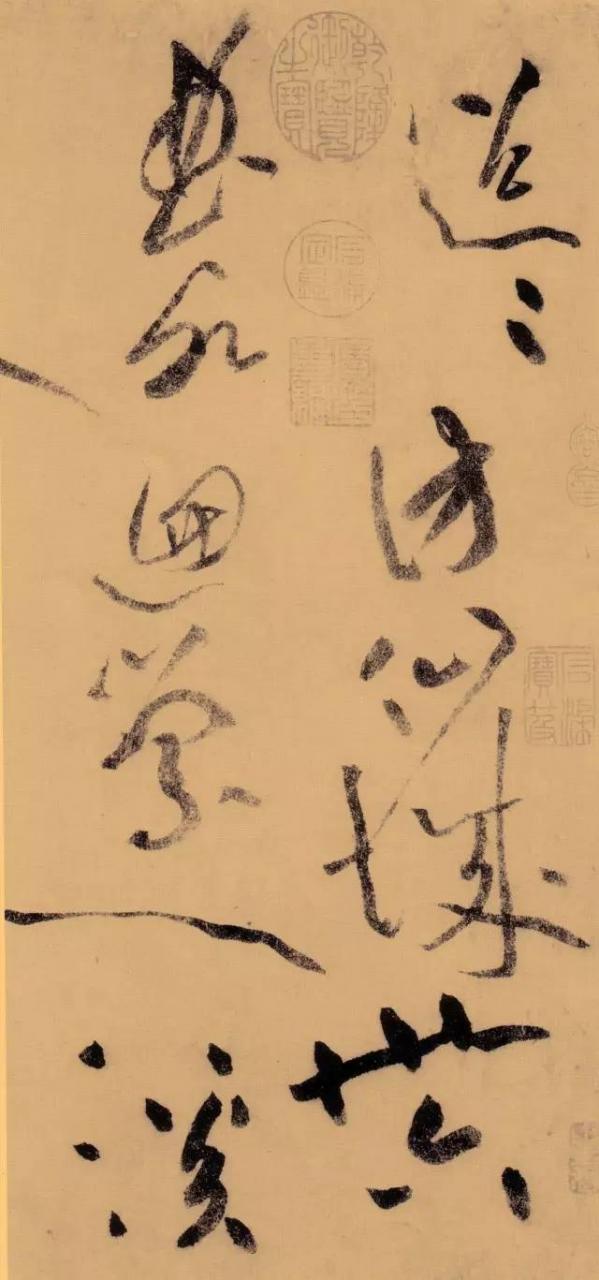 迢迢訪仙城卅六
曲水迴縈一溪